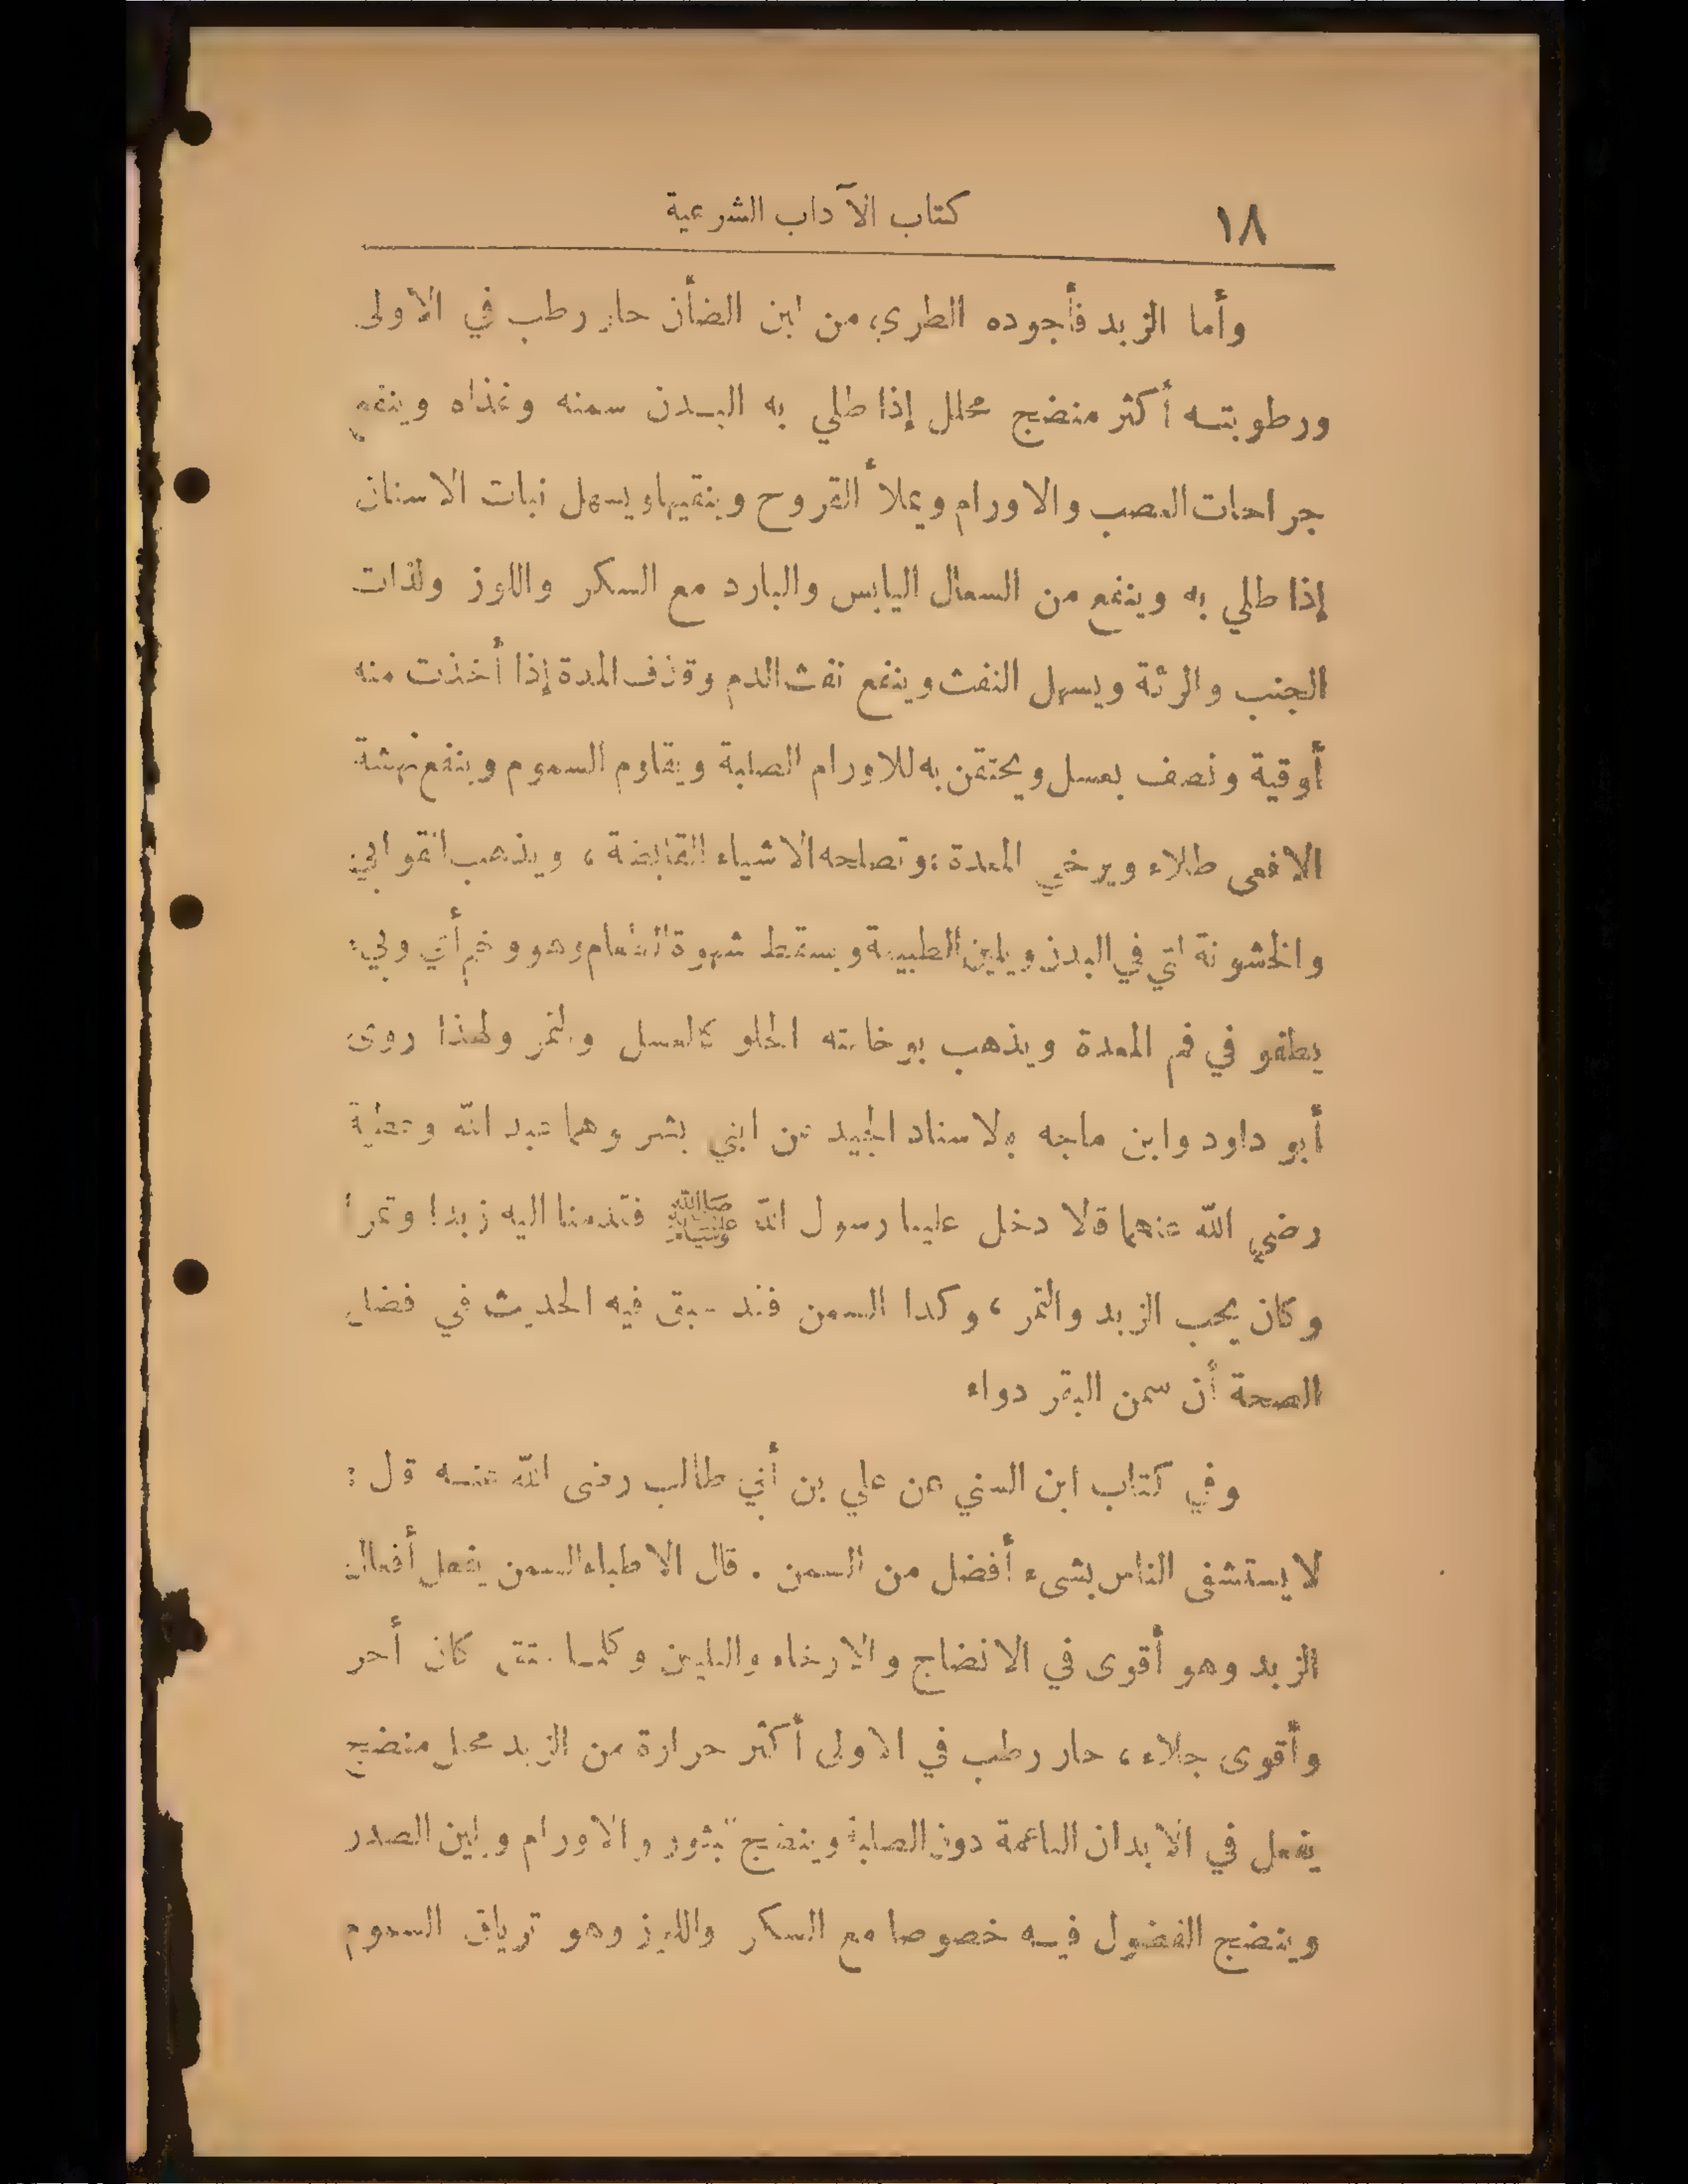 ١٨ كتاب الآداب الشرعية
وأما الزبد فأجوده الطري، من لبن الضأن حار رطب في الاولى
ورطوبته أكثر منضج محلل إذا طلي به البدن سمنه وغذاه وينفع
جراحات العصب والاورام ويملأ القروح وينقيها ويسهل نبات الاسنان
إذا طلي به وينفع من السعال اليابس والبارد مع السكر واللوز ولذات
الجنب والرئة ويسهل النفث وينفع نفث الدم وقذف المدة إذا أخذت منه
أوقية ونصف بعسل ويحتقن به للاورام الصلبة ويقاوم السموم وينفع نهشة
الافعى طلاء ويرخي المعدة ؛ وتصلحه الاشياء القابضة ، ويذهب القوابي
والخشونة التي في البدن ويلين الطبيعة ويسقط شهوة الطعام وهو وخم أي وبيء
يطفو في فم المعدة ويذهب بوخامته الحلو كالعسل والتمر ولهذا روى
أبو داود وابن ماجه بالاسناد الجيد عن ابني بشر وهما عبد الله وعطية
رضي الله عنهما قالا دخل علينا رسول الله ﷺ فقدمنا اليه زبدا وتمرا
وكان يحب الزبد والتمر ، وكذا السمن فقد سبق فيه الحديث في فضل
الصحة أن سمن البقر دواء
وفي كتاب ابن السني عن علي بن أبي طالب رضى الله عنه قال :
لا يستشفى الناس بشىء أفضل من السمن . قال الاطباء السمن يفعل أفعال
الزبد وهو أقوى في الانضاج والارخاء والتليين وكلما عتق كان أحر
وأقوى جلاء ، حار رطب في الاولى أكثر حرارة من الزبد محلل منضج
يفعل في الابدان الناعمة دون الصلبة وينضج البثور والاورام ويلين الصدر
وينضج الفضول فيه خصوصا مع السكر واللوز وهو ترياق السموم